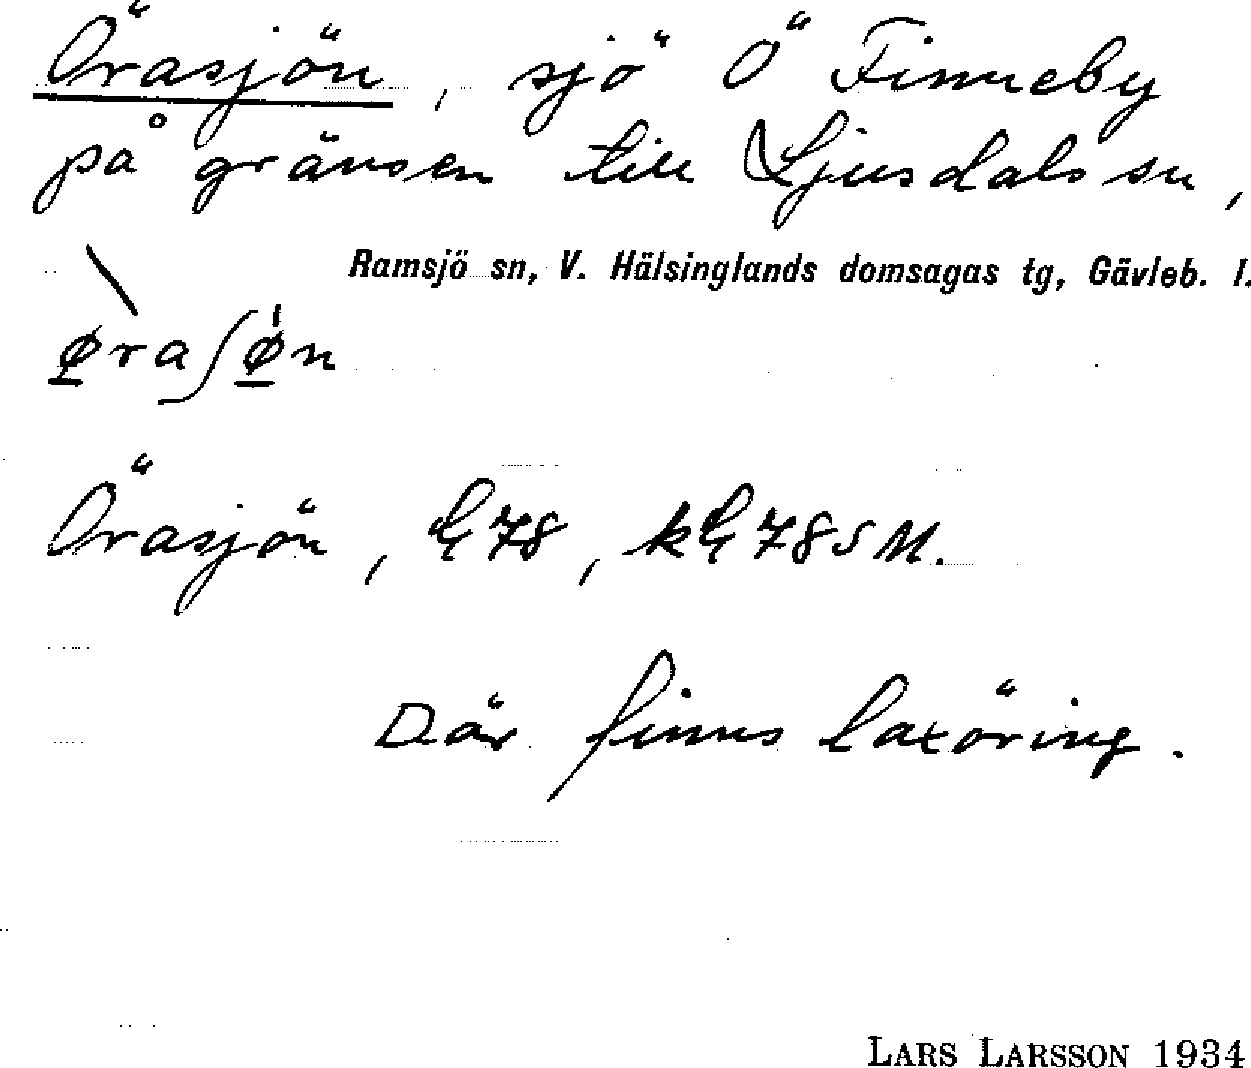 Örasjön, sjö Ö Finneby
på gränsen till Ljusdals sn,
Ramsjö sn, V. Hälsinglands domsagas tg, Gävleb. l.
ø̱̀raʃǿ̱n
Örasjön, G 78, kG 78 S M.
Där finns laxöring.
LARS LARSSON 1934